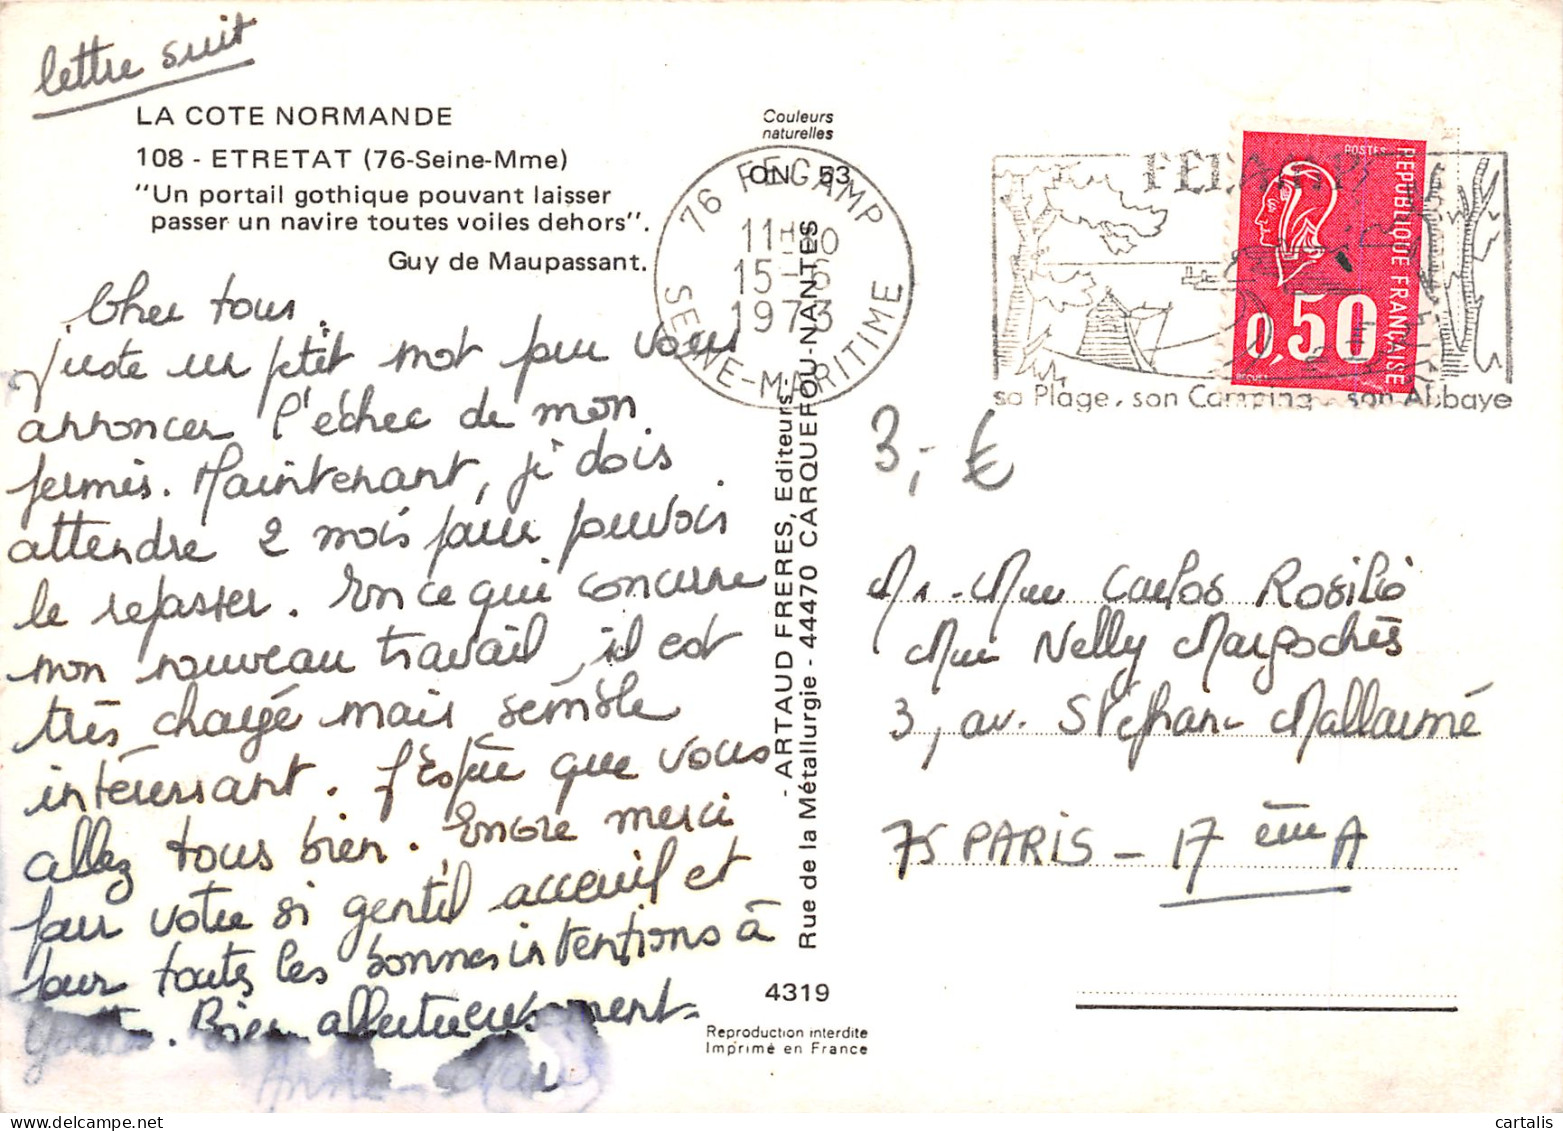 lettre suit
LA COTE NORMANDE
108 - ETRETAT (76-Seine-Mme)
"Un portail gothique pouvant laisser
passer un navire toutes voiles dehors".
Guy de Maupassant.
Cher tous.
juste un petit mot pour vous
annoncer l'échec de mon
permis. Maintenant, je dois
attendre 2 mois pour pouvois
le repasser. En ce qui concerne
mon nouveau travail, il est
très chargé mais semble
intéressant. J'Espère que vous
allez tous bien. Encore merci
pour votre si gentil accueil et
pour toutes les bonnes intentions à
Bien affectueusement.
Anne-
Couleurs
naturelles
76 FECAMP
11H30
15-6
1973
SEINE-MARITIME
- ARTAUD FRERES, Editeurs -
Rue de la Métallurgie - 44470 CARQUEFOU-NANTES
4319
Reproduction interdite
Imprimé en France
FECAMP
sa Plage, son Camping, son Abbaye
POSTES
REPUBLIQUE FRANÇAISE
0,50
3,- €
Mr - Mme Carlos Rosilio
Mme Nelly Margochès
3, av. Stéphane Mallarmé
75 PARIS - 17 ème A
cartalis